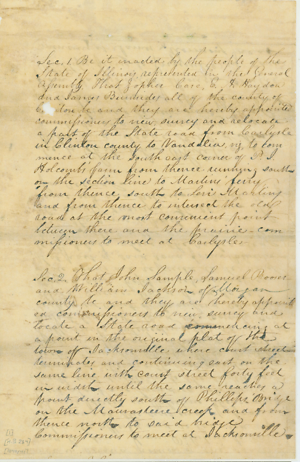 Sec. 1 Be it enacted by the people of the
State of Illinois represented in the General
Assembly That Zophar Case, E. H. Haydon
and James all of the county of
Clinton be and they are hereby appointed
commissioners to new survey and relocate
a part of the State road from Carlyle
in Clinton county to Vandalia, viz, to com
mence at the South east corner of
Holcombs farm from thence running south
on the section line to Martins ferry
from thence south to
and from thence to intersect the old
road at the most convenient point
between there and the prairie com
missioners to meet at Carlyle
Sec 2. That John Sample, Samuel
and William Jackson of Morgan
county be and they are hereby appoint
ed commissioners to new survey and
locate a State road commencing at
a point in the original plat of the
town of Jacksonville where court street
terminates and continuing east on the
same line with court street forty feet
in width until the same reaches a
point directly south of Phillips Bridge
on the Mauvaisterre creek and from
thence north to said bridge
Commissioners to meet at Jacksonville